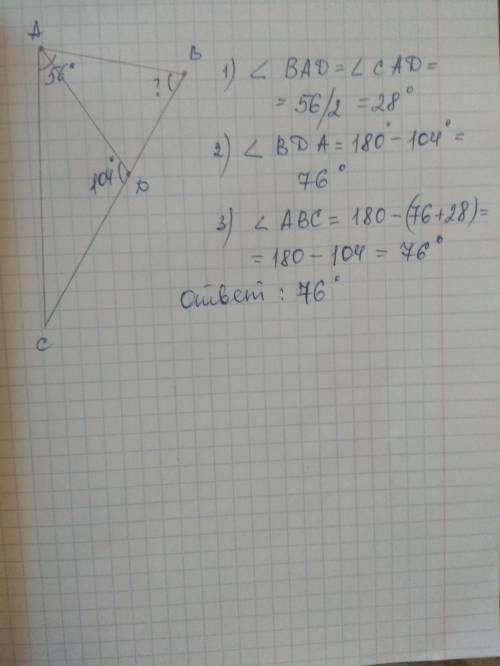 A
B
56°
?
1) ∠ BAD = ∠ CAD =
= 56/2 = 28°
104°
D
2) ∠ BDA = 180° - 104° =
76°
3) ∠ ABC = 180 - (76+28) =
= 180 - 104 = 76°
Ответ : 76°
C